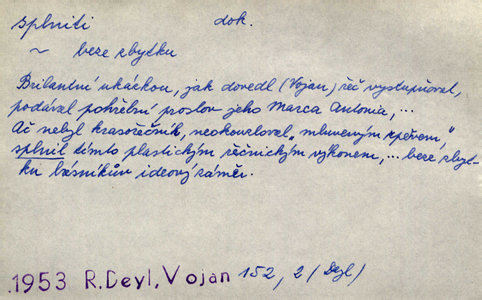 splniti dok.
~ beze zbytku
Brilantní ukázkou, jak dovedl (Vojan) řeč vystupňovat,
podával pohřební proslov jeho Marca Antonia, ...
Ač nebyl krasořečník, neokouzloval „mluveným zpěvem,“
splnil tímto plastickým řečnickým výkonem, ... beze zbyt-
ku básníkův ideový záměr.
1953 R.Deyl, Vojan 152, 2 (Deyl)